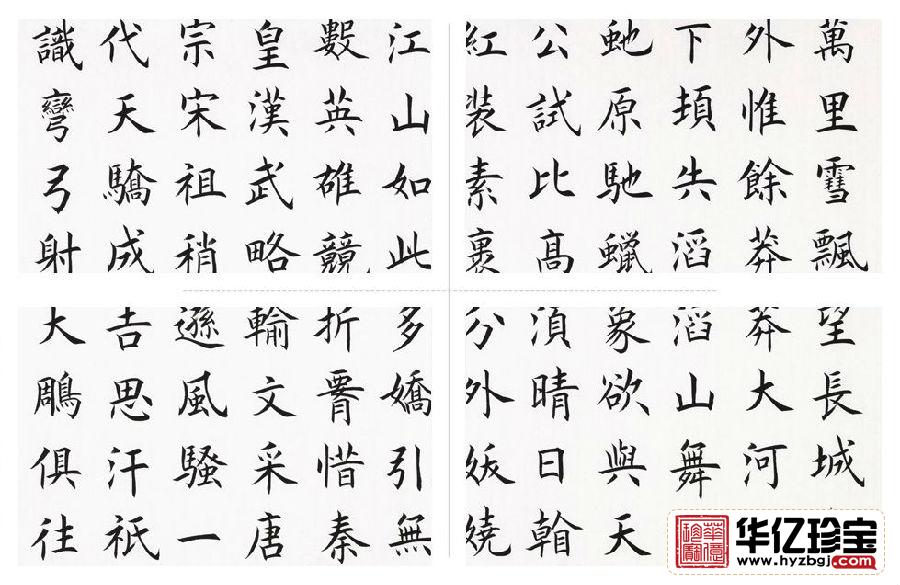 萬里雪飄望長城
外惟餘莽莽大河
下頓失滔滔山舞
虵原馳蠟象欲與天
公試比高須晴日看
紅裝素裹分外妖繞
江山如此多嬌引無
數英雄競折腰惜秦
皇漢武略輸文采唐
宗宋祖稍遜風騷一
代天驕成吉思汗祇
識彎弓射大鵰俱往
华亿珍宝
www.hyzbgj.com